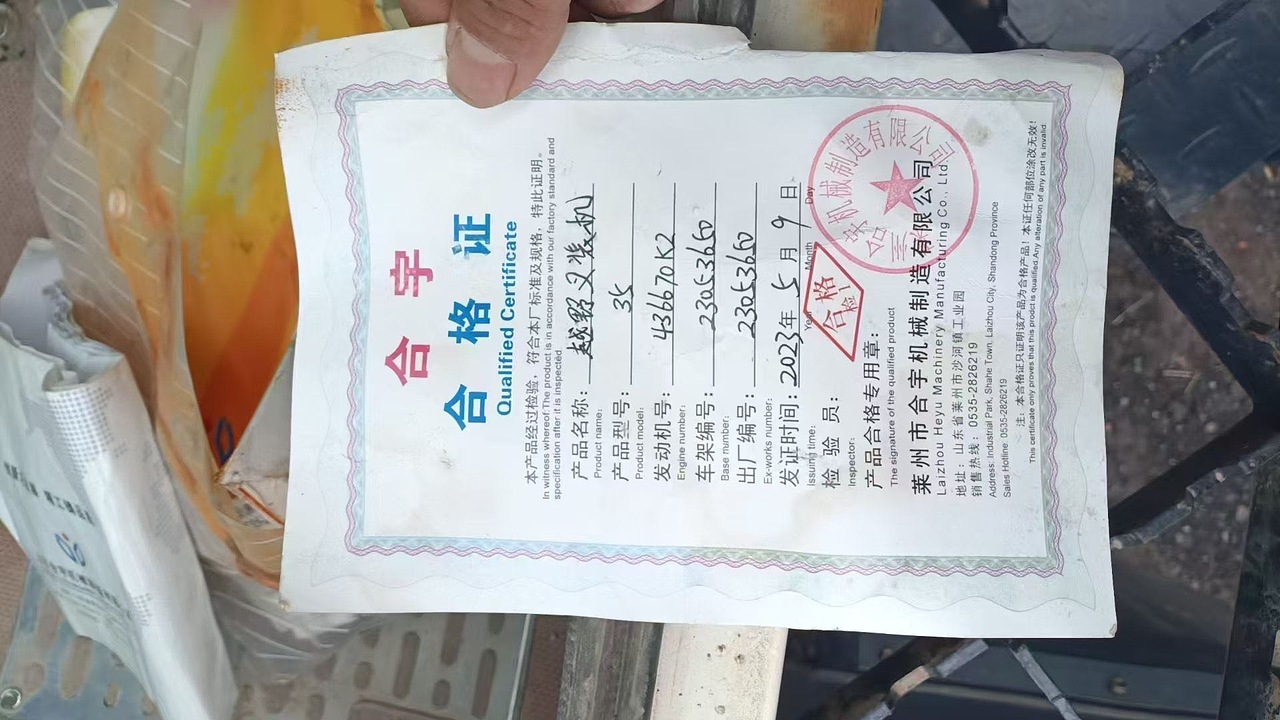 合宇
合格证
Qualified Certificate
本产品经过检验，符合本厂标准及规格，特此证明。
In witness whereof The product is in accordance with our factory standard and
specification after it is inspected.
产品名称：越野叉装机
Product name:
产品型号：35
Product model:
发动机号：436670K2
Engine number:
车架编号：23053660
Base number:
出厂编号：23053660
Ex-works number:
发证时间：2023年5月9日
Issuing time: Year Month Day
检验员：
Inspector:
合格
产品合格专用章：
The signature of the qualified product
莱州市合宇机械制造有限公司
Laizhou Heyu Machinery Manufacturing Co., Ltd
地址：山东省莱州市沙河镇工业园
销售热线：0535-2826219
Address: Industrial Park, Shahe Town, Laizhou City, Shandong Province
Sales Hotline: 0535-2826219
注：本合格证只证明该产品为合格产品！本证任何部位涂改无效！
This certificate only proves that this prodct is qualified.Any alteration of any part is invalid
机械制造有限公司